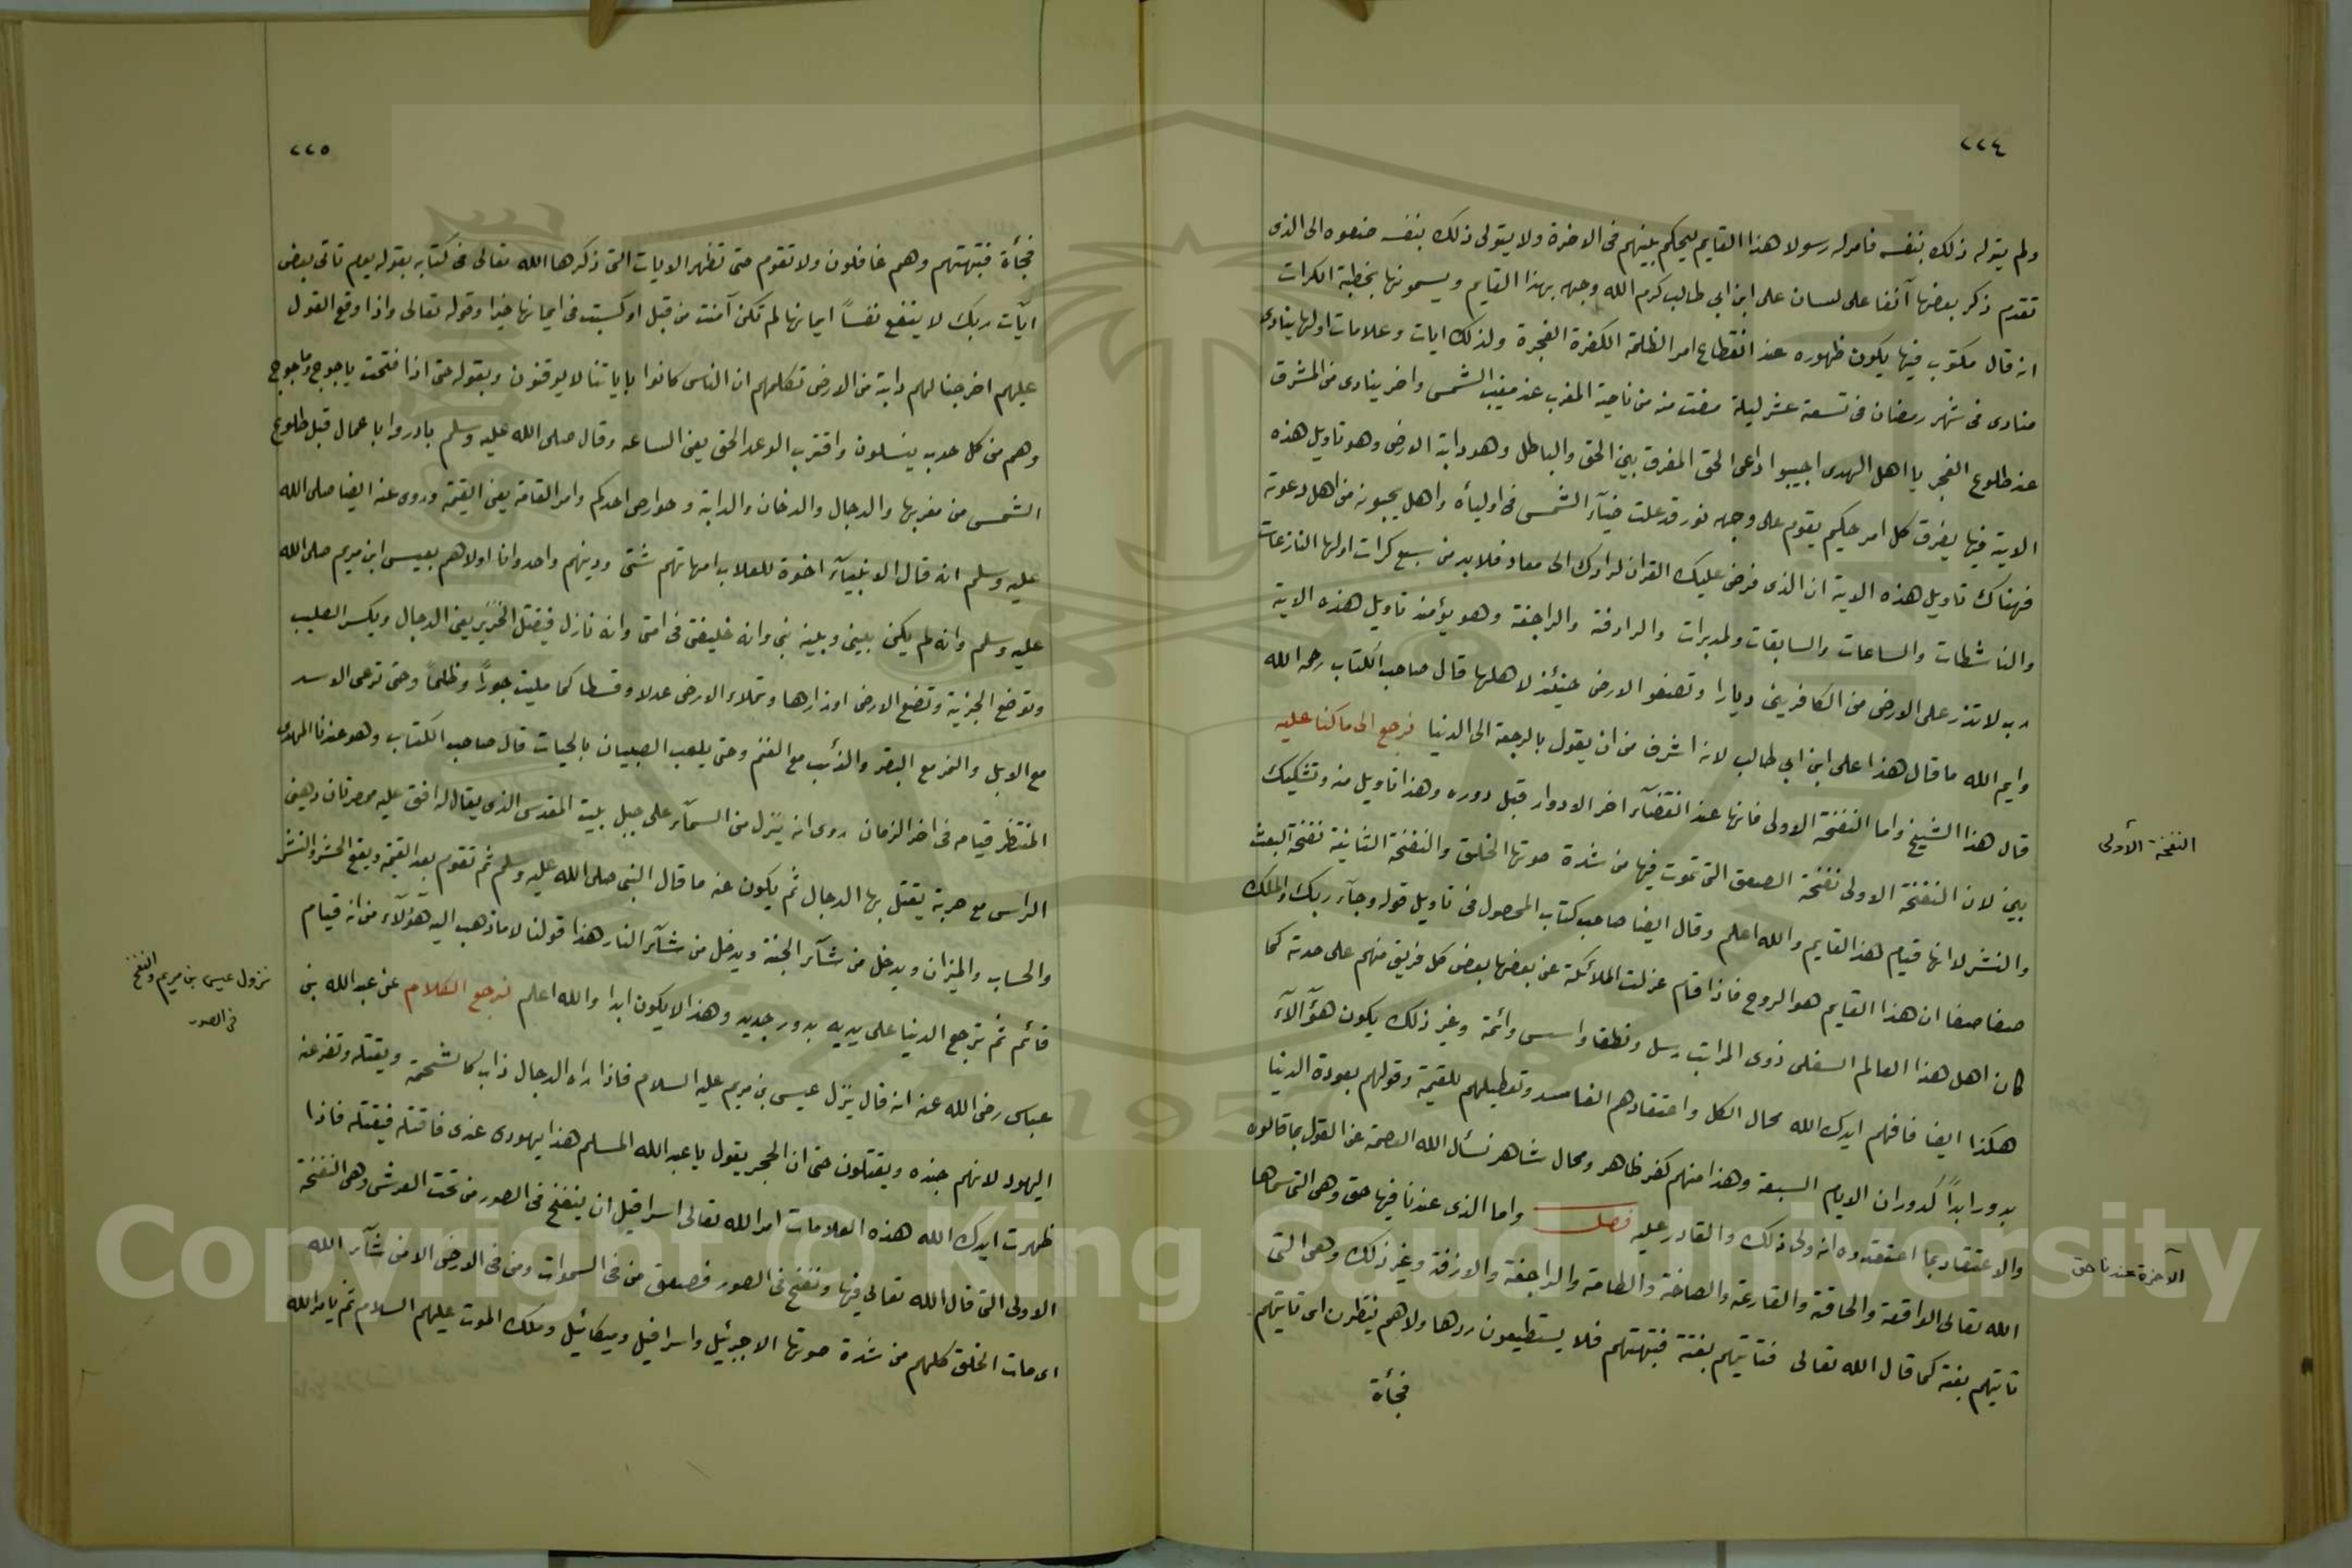 ٢٢٤
ولم يتوله ذلك بنفسه فامر له رسولا هذا القايم ليحكم بينهم فى الاخرة ولا يتولى ذلك بنفسه صنعوه الى الذى
تقدم ذكر بعضها آنفا على لسان على ابن ابي طالب كرم الله وجهه بهذا القايم ويسمونها بخطبة الكرات
انه قال مكتوب فيها يكون ظهوره عند انقطاع امر الظلمة الكفرة الفجرة ولذلك ايات وعلامات اولها ينادى
منادى فى شهر رمضان فى تسعة عشر ليلة مضت منه من ناحية المغرب عند مغيب الشمس واخر ينادى من المشرق
عند طلوع الفجر يا اهل الهدى اجيبوا داعى الحق المفرق بين الحق والباطل وهو دابة الارض وهو تاويل هذه
الاية فيها يفرق كل امر حكيم يقوم على وجهه نور قد علت ضيآء الشمس فى اوليآه واهل يجيبونه من اهل دعوته
فهناك تاويل هذه الاية ان الذى فرض عليك القران لرادك الى معاد فلا بد من سبع كرات اولها النازعات
والناشطات والساعات والسابقات ولمدبرات والرادفة والراجفة وهو يؤمئذ تاويل هذه الاية
رب لا تذر على الارض من الكافرين ديارا وتصفو الارض حينئذ لاهلها قال صاحب الكتاب رحمه الله
وايم الله ما قال هذا على ابن ابي طالب لانه اشرف من ان يقول بالرجعة الى الدنيا نرجع الى ما كنا عليه
قال هذا الشيخ واما النفخة الاولى فانها عند انقضآء اخر الادوار قبل دوره وهذا تاويل منه وتشكيك
بين لان النفخة الاولى نفخة الصعق التى تموت فيها من شدة صوتها الخلق والنفخة الثانية نفخة البعث
والنشر لانها قيام هذا القايم والله اعلم وقال ايضا صاحب كتاب المحصول فى تاويل قوله وجآء ربك والملك
صفا صفا ان هذا القايم هو الروح فاذا قام عزلت الملائكة عن بعضها بعض كل فريق منهم على حدته كما
كان اهل هذا العالم السفلى ذوى المراتب رسل ونطقا واسس وائمة وغير ذلك يكون هؤالآء
هكذا ايضا فافهم ايدك الله محال الكل واعتقادهم الفاسد وتعطيلهم للقيمة وقولهم بعودة الدنيا
بدور ابدًا كدوران الايام السبعة وهذا منهم كفر ظاهر ومحال شاهر نسأل الله العصمة عن القول بما قالوه
والاعتقاد بما اعتقدوه انه ولى ذلك والقادر عليه فصل واما الذى عندنا فيها حق وهى التى سماها
الله تعالى الواقعة والحاقة والقارعة والصاخة والطامة والراجفة والازفة وغير ذلك وهى التى
تاتيهم بغتة كما قال الله تعالى فتاتيهم بغتة فتبهتهم فلا يستطيعون ردها ولا هم ينظرون اى تاتيهم
فجأة
النفخة الأولى
الآخرة عندنا حق
٢٢٥
فجأة فتبهتهم وهم غافلون ولا تقوم حتى تظهر الايات التى ذكرها الله تعالى فى كتابه بقوله يوم تاتى بعض
ايآت ربك لا ينفع نفسًا ايمانها لم تكن آمنت من قبل او كسبت فى ايمانها خيرا وقوله تعالى واذا وقع القول
عليهم اخرجنا لهم دابة من الارض تكلمهم ان الناس كانوا بايآتنا لا يوقنون وبقوله حتى اذا فتحت ياجوج وماجوج
وهم من كل حدب ينسلون واقترب الوعد الحق يعنى الساعه وقال صلى الله عليه وسلم بادروا با عمال قبل طلوع
الشمس من مغربها والدجال والدخان والدابة وحوارص احدكم وامر القامة يعنى القيمة وروى عنه ايضا صلى الله
عليه وسلم انه قال الانبيآء اخوة للعلاب امهاتهم شتى ودينهم واحد وانا اولاهم بعيسى ابن مريم صلى الله
عليه وسلم وانه لم يكن بينى وبينه نبى وانه خليفتى فى امتى وانه نازل فيقتل الخنزير يعنى الدجال ويكسر الصليب
وتوضع الجزية وتضع الارض اوزارها وتملاء الارض عدلا وقسطا كما مليت جورًا وظلمًا وحتى ترعى الاسد
مع الابل والنمر مع البقر والذئب مع الغنم وحتى يلعب الصبيان بالحيات قال صاحب الكتاب وهو عندنا المهدى
المنتظر قيامه فى اخر الزمان روى انه ينزل من السمآء على جبل بيت المقدس الذى يقال له افق عليه ممصرتان دهين
الراس مع حربة يقتل بها الدجال ثم يكون عنه ما قال النبى صلى الله عليه وسلم ثم تقوم بعد القيمة ويقع الحشر والنشر
والحساب والميزان ويدخل من شآء الجنة ويدخل من شآء النار هذا قولنا لا ما ذهب اليه هؤلآء من انه قيام
قائم ثم ترجع الدنيا على يديه بدور جديد وهذا لا يكون ابدا والله اعلم نرجع الكلام عن عبد الله بن
عباس رضى الله عنه انه قال ينزل عيسى بن مريم عليه السلام فاذا راه الدجال ذاب كالشحمة ويقتله وتفرعنه
اليهود لانهم جنده ويقتلون حتى ان الحجر يقول يا عبد الله المسلم هذا يهودى عندى فاقتله فيقتله فاذا
ظهرت ايدك الله هذه العلامات امر الله تعالى اسرافيل ان ينفخ فى الصور من تحت العرش وهى النفخة
الاولى التى قال الله تعالى فيها ونفخ فى الصور فصعق من فى السموات ومن فى الارض الا من شآء الله
اى مات الخلق كلهم من شدة صوتها الا جبرئيل واسرافيل وميكائيل وملك الموت عليهم السلام ثم يامر الله
نزول عيسى بن مريم والنفخ
فى الصور
Copyright © King Saud University
1957